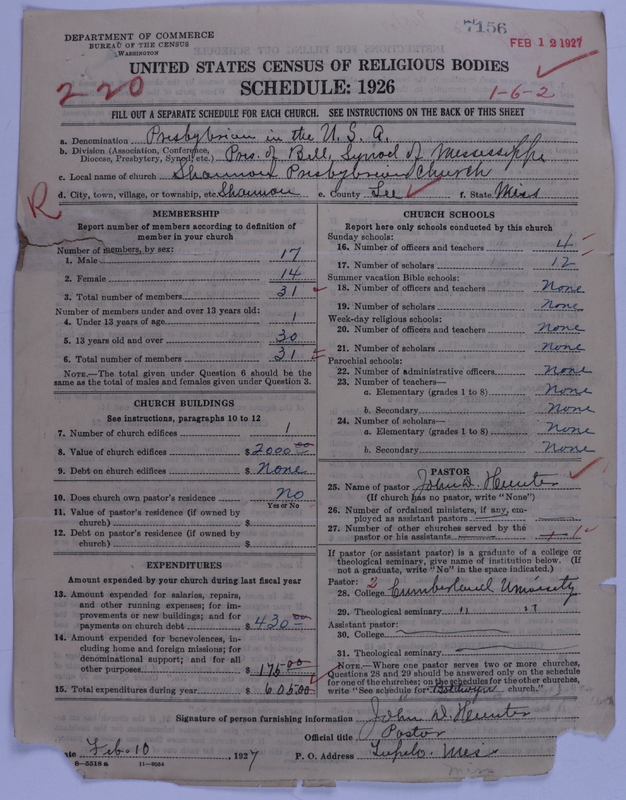 7156
DEPARTMENT OF COMMERCE
BUREAU OF THE CENSUS
WASHINGTON
FEB 12 1927
UNITED STATES CENSUS OF RELIGIOUS BODIES
SCHEDULE: 1926
220
1-6-2
FILL OUT A SEPARATE SCHEDULE FOR EACH CHURCH. SEE INSTRUCTIONS ON THE BACK OF THIS SHEET
a. Denomination Presbybrian in the U.S.A.
b. Division (Association, Conference, Diocese, Presbytery, Synod, etc.) Pres. of Bell, Synod of Mississippi
c. Local name of church Shannon Presbybrian Church
d. City, town, village, or township, etc. Shannon e. County Lee f. State Miss
R
MEMBERSHIP
Report number of members according to definition of
member in your church
Number of members, by sex:
1. Male 17
2. Female 14
3. Total number of members 31
Number of members under and over 13 years old:
4. Under 13 years of age 1
5. 13 years old and over 30
6. Total number of members 31
NOTE.—The total given under Question 6 should be
the same as the total of males and females given under Question 3.
CHURCH BUILDINGS
See instructions, paragraphs 10 to 12
7. Number of church edifices 1
8. Value of church edifices $ 2000 00
9. Debt on church edifices $ None
10. Does church own pastor's residence No
Yes or No
11. Value of pastor's residence (if owned by
church) $
12. Debt on pastor's residence (if owned by
church) $
EXPENDITURES
Amount expended by your church during last fiscal year
13. Amount expended for salaries, repairs,
and other running expenses; for im-
provements or new buildings; and for
payments on church debt $ 430 00
14. Amount expended for benevolences, in-
cluding home and foreign missions; for
denominational support; and for all
other purposes $ 175 00
15. Total expenditures during year $ 605 00
CHURCH SCHOOLS
Report here only schools conducted by this church
Sunday schools:
16. Number of officers and teachers 4
17. Number of scholars 12
Summer vacation Bible schools:
18. Number of officers and teachers None
19. Number of scholars None
Week-day religious schools:
20. Number of officers and teachers None
21. Number of scholars None
Parochial schools:
22. Number of administrative officers None
23. Number of teachers—
a. Elementary (grades 1 to 8) None
b. Secondary None
24. Number of scholars—
a. Elementary (grades 1 to 8) None
b. Secondary None
PASTOR
25. Name of pastor John D. Hunter
(If church has no pastor, write "None")
26. Number of ordained ministers, if any, em-
ployed as assistant pastors
27. Number of other churches served by the
pastor or his assistants 1
If pastor (or assistant pastor) is a graduate of a college or
theological seminary, give name of institution below. (If
not a graduate, write "No" in the space indicated.)
Pastor: 2
28. College Cumberland University
29. Theological seminary " "
Assistant pastor:
30. College
31. Theological seminary
NOTE.—Where one pastor serves two or more churches,
Questions 28 and 29 should be answered only on the schedule
for one of the churches; on the schedules for the other churches,
write "See schedule for Baldwyn church."
Signature of person furnishing information John D. Hunter
Official title Pastor
Date Feb. 10, 1927 P. O. Address Tupelo, Mis
8-5518 a 11-9054
miss